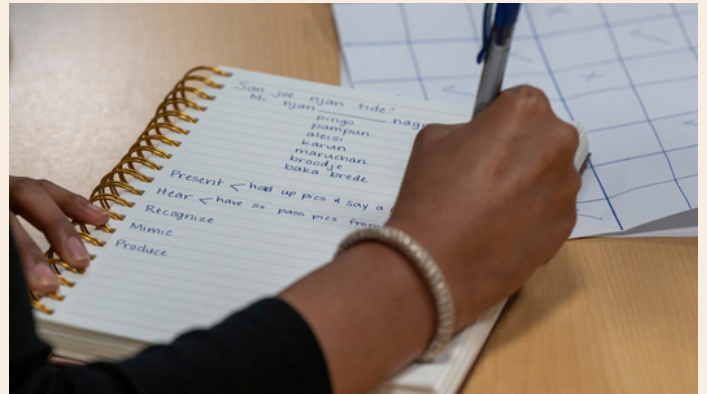 San joe njan tide?
Mi njan ______ nag
pingo
pampun
aleisi
karun
maruchan
broodje
baka brede
Present < hold up pics & say a
Hear < have Ss pass pics from
Recognize
Mimic
Produce